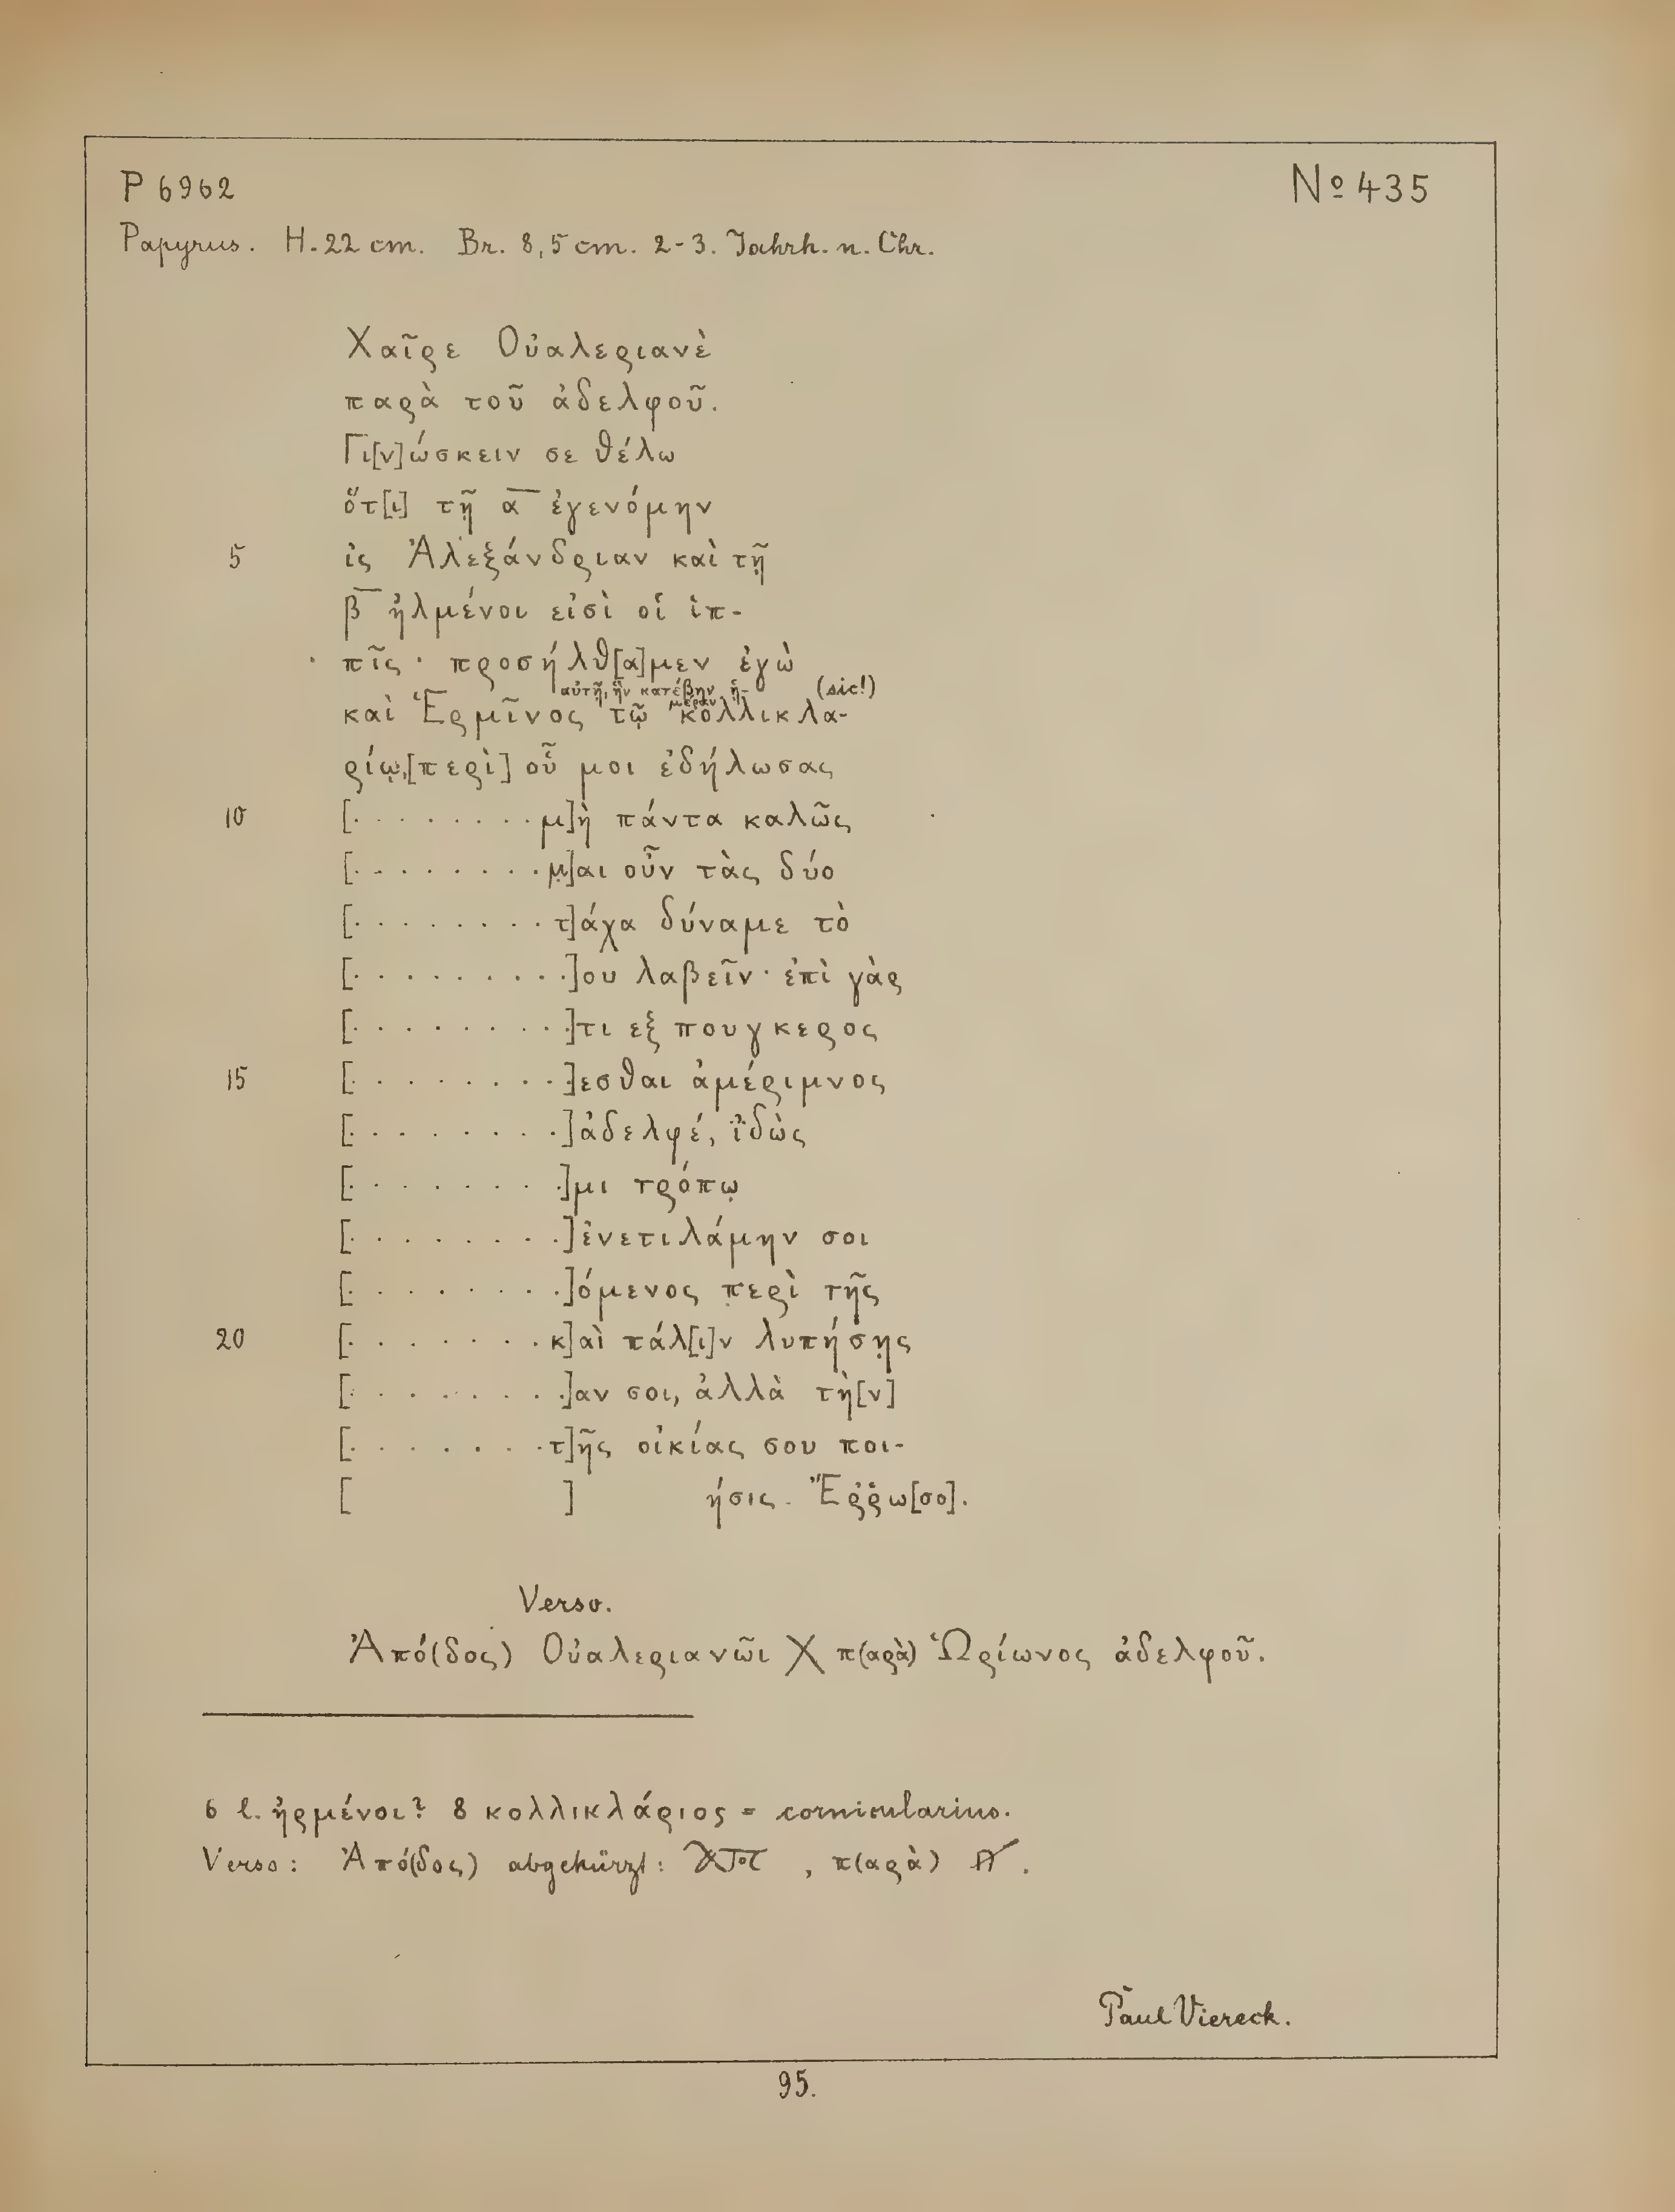 P 6962
Nº 435
Papyrus. H. 22 cm. Br. 8,5 cm. 2-3. Jahrh. n. Chr.
Χαῖρε Οὐαλεριανὲ
παρὰ τοῦ ἀδελφοῦ.
Γι[ν]ώσκειν σε θέλω
ὅτ[ι] τῇ α̅ ἐγενόμην
5 ἰς Ἀλεξάνδριαν καὶ τῇ
β̅ ἠλμένοι εἰσὶ οἱ ἱπ-
πῖς · προσήλθ[α]μεν ἐγὼ
αὐτῇ, ἣν κατέβην ἡ- (sic!)
μέραν
καὶ Ἑρμῖνος τῷ κολλικλα-
ρίῳ,[περὶ] οὗ μοι ἐδήλωσας
10 [. . . . . . . . μ]ὴ πάντα καλῶς
[. . . . . . . . μ̣]αι οὖν τὰς δύο
[. . . . . . . . τ]άχα δύναμε τὸ
[. . . . . . . . .]ου λαβεῖν · ἐπὶ γὰρ
[. . . . . . . . .]τι εξ πουγκερος
15 [. . . . . . . . .]εσθαι ἀμέριμνος
[. . . . . . . .]ἀδελφέ, ἰ̈δὼς
[. . . . . . . .]μι τρόπῳ
[. . . . . . . .]ἐνετιλάμην σοι
[. . . . . . . .]όμενος περὶ τῆς
20 [. . . . . . . κ]αὶ πάλ[ι]ν λυπήσῃς
[. . . . . . . .]αν σοι, ἀλλὰ τὴ[ν]
[. . . . . . . τ]ῆς οἰκίας σου ποι-
[ ] ήσις. Ἔῤῥω[σο].
Verso.
Ἀπό(δος) Οὐαλεριανῶι Χ π(αρὰ) Ὡρίωνος ἀδελφοῦ.
6 l. ἠρμένοι? 8 κολλικλάριος = cornicularius.
Verso: Ἀπό(δος) abgekürzt: , π(αρὰ) .
Paul Viereck.
95.